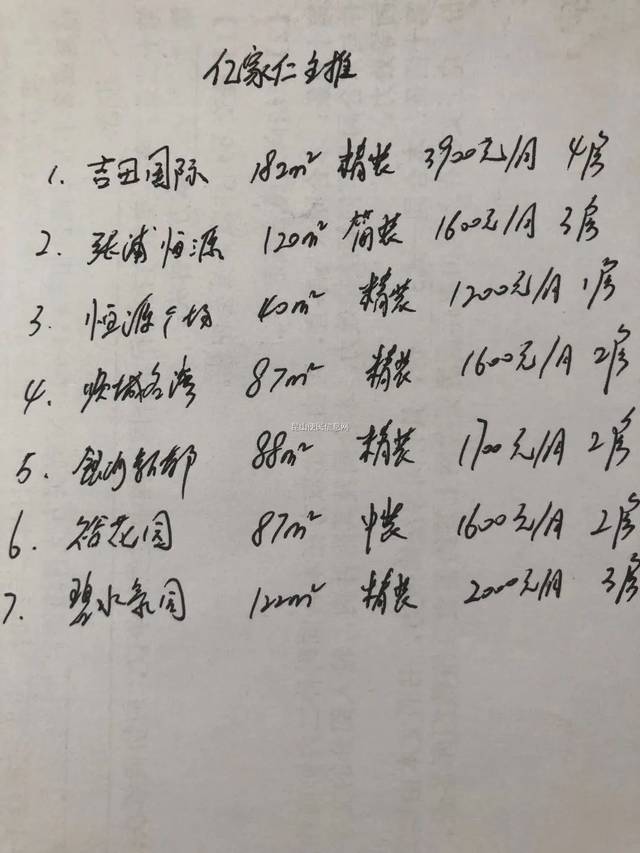 亿家仁主推
1. 吉田国际 182m² 精装 3900元/月 4房
2. 张浦恒源 120m² 简装 1600元/月 3房
3. 恒源广场 40m² 精装 1200元/月 1房
4. 城名湾 87m² 精装 1600元/月 2房
昆山便民信息网
5. 银河新都 88m² 精装 1700元/月 2房
6. 裕花园 87m² 中装 1600元/月 2房
7. 碧水豪园 122m² 精装 2000元/月 3房